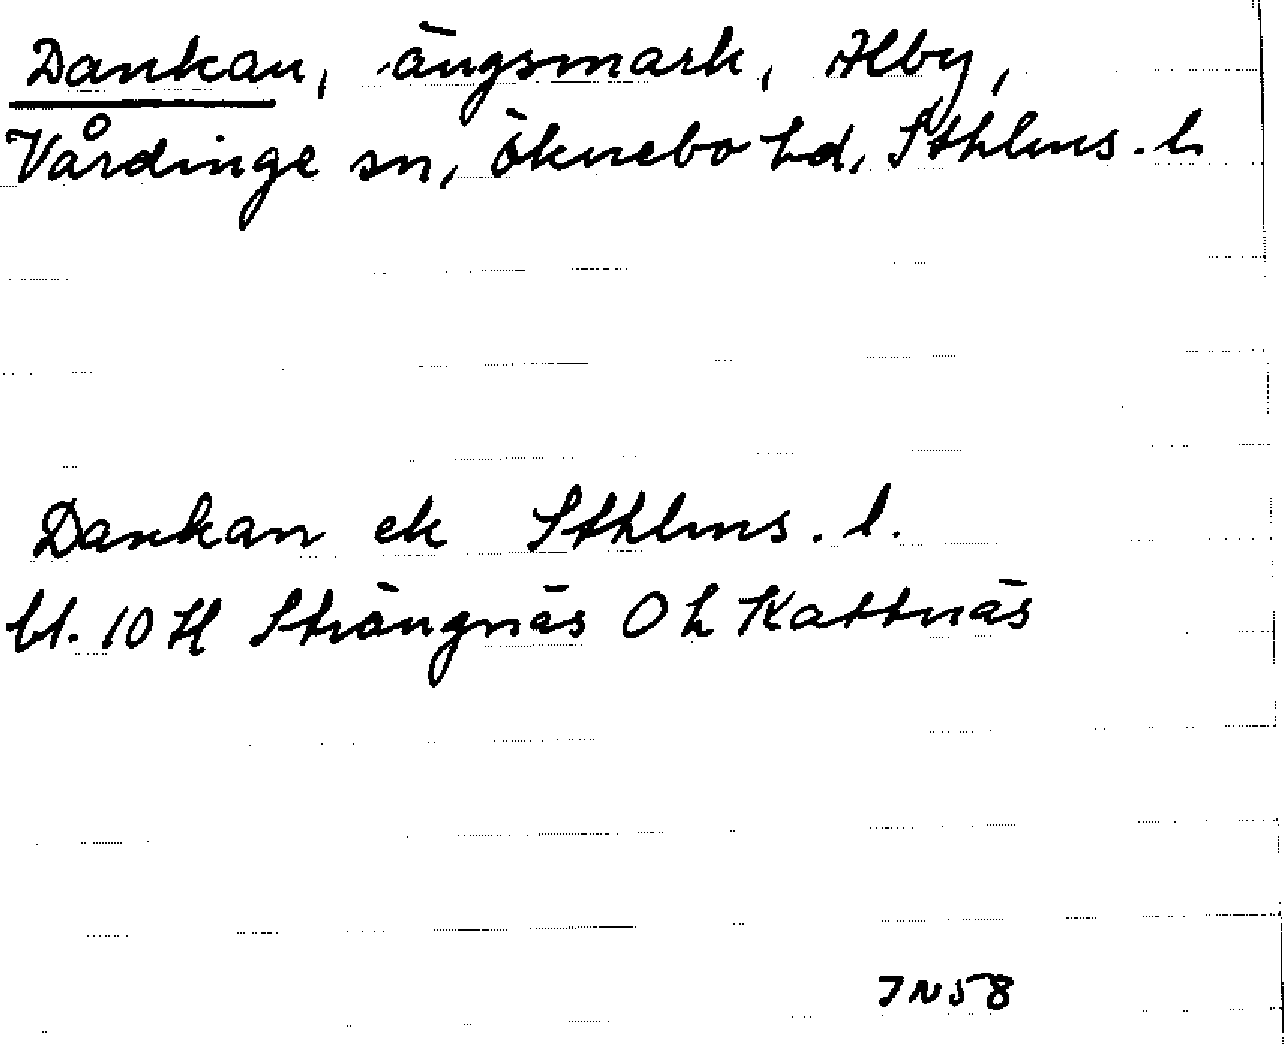 Dankan, ängsmark, Alby,
Vårdinge sn, Öknebo hd, Sthlms. l.
Dankan ek Sthlms. l.
bl. 10 H Strängnäs O h Kattnäs
JN58